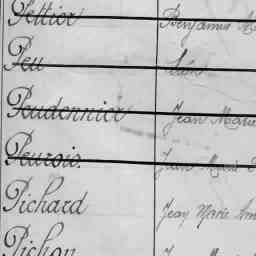 Peltier Benjamin
Peu Louis
Peudennier Jean Marie
Peurois Jean Marie
Pichard Jean Marie
Pichon